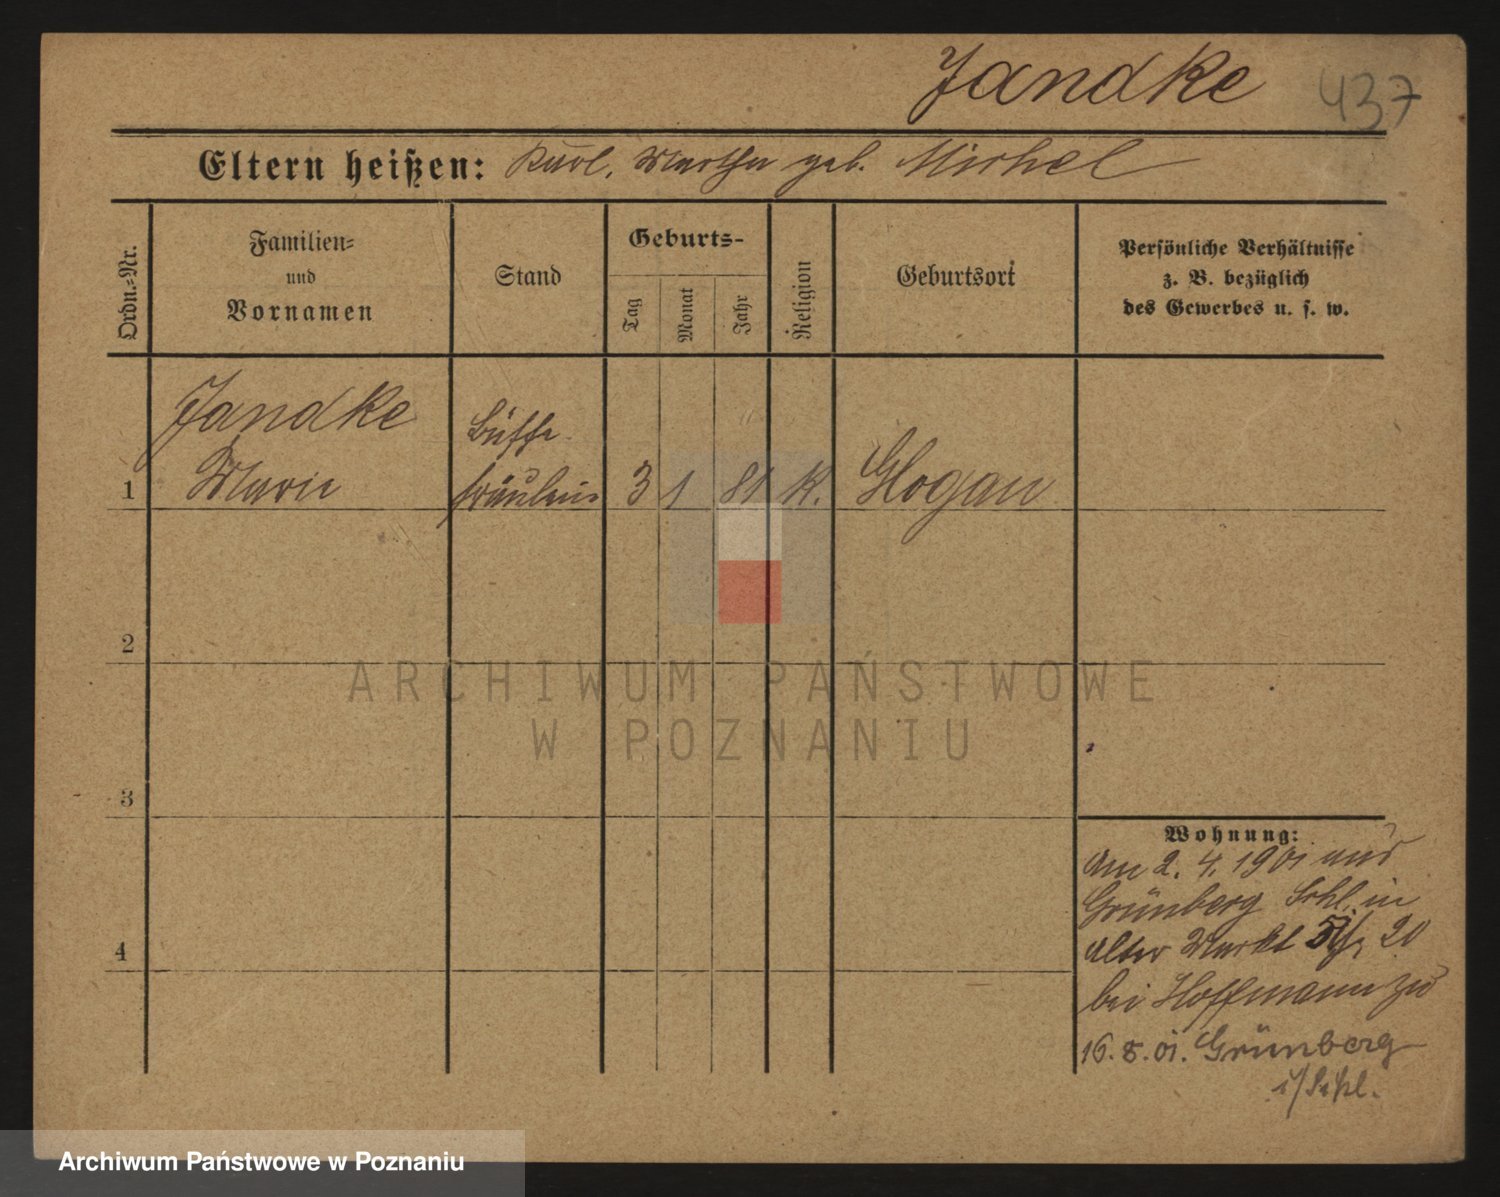 Jandke 437
Eltern heißen: Karl, Martha geb. Michel
Ordn.=Nr.
Familien=
und
Vornamen
Stand
Geburts-
Tag
Monat
Jahr
Religion
Geburtsort
Persönliche Verhältnisse
z. B. bezüglich
des Gewerbes u. s. w.
Jandke
Büffe-
1 Marie fräulein 3 1 81 K. Glogau
2
ARCHIWUM PAŃSTWOWE
W POZNANIU
3
Wohnung:
Am 2. 4. 1901 aus
Grünberg Schl. in
Alter Markt 20
4
bei Hoffmann zu
16. 8. 01. Grünberg
i/Schl.
Archiwum Państwowe w Poznaniu